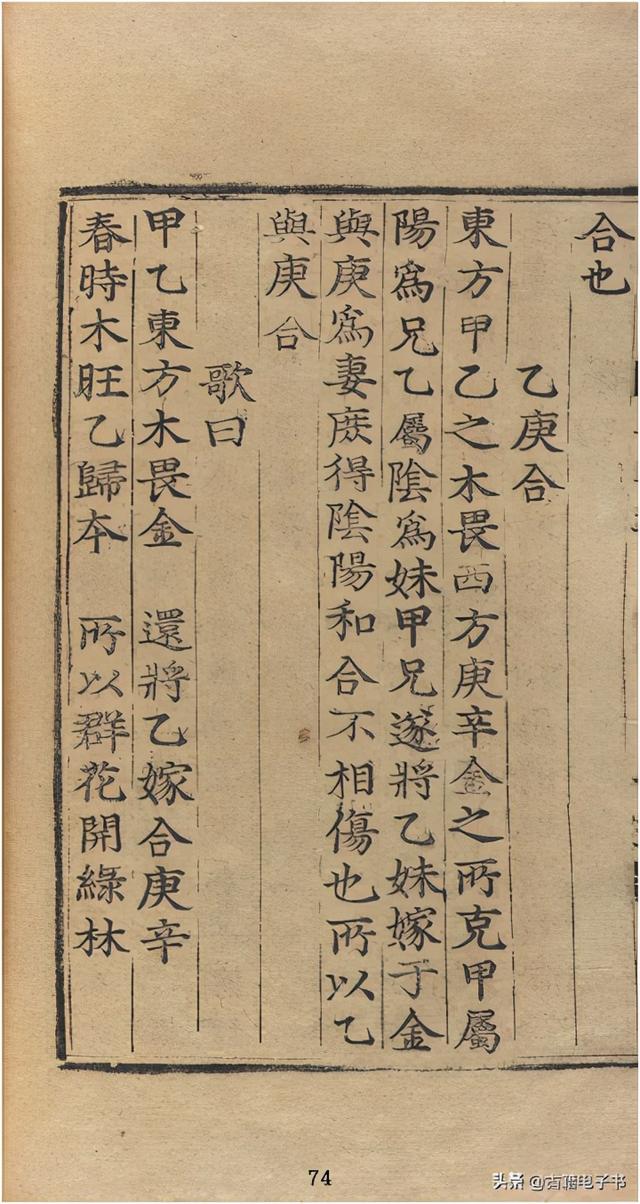 合也
乙庚合
東方甲乙之木畏西方庚辛金之所克甲屬
陽爲兄乙屬陰爲妹甲兄遂將乙妹嫁于金
與庚爲妻庶得陰陽和合不相傷也所以乙
與庚合
歌曰
甲乙東方木畏金 還將乙嫁合庚辛
春時木旺乙歸本 所以群花開綠林
74
头条 @古籍电子书